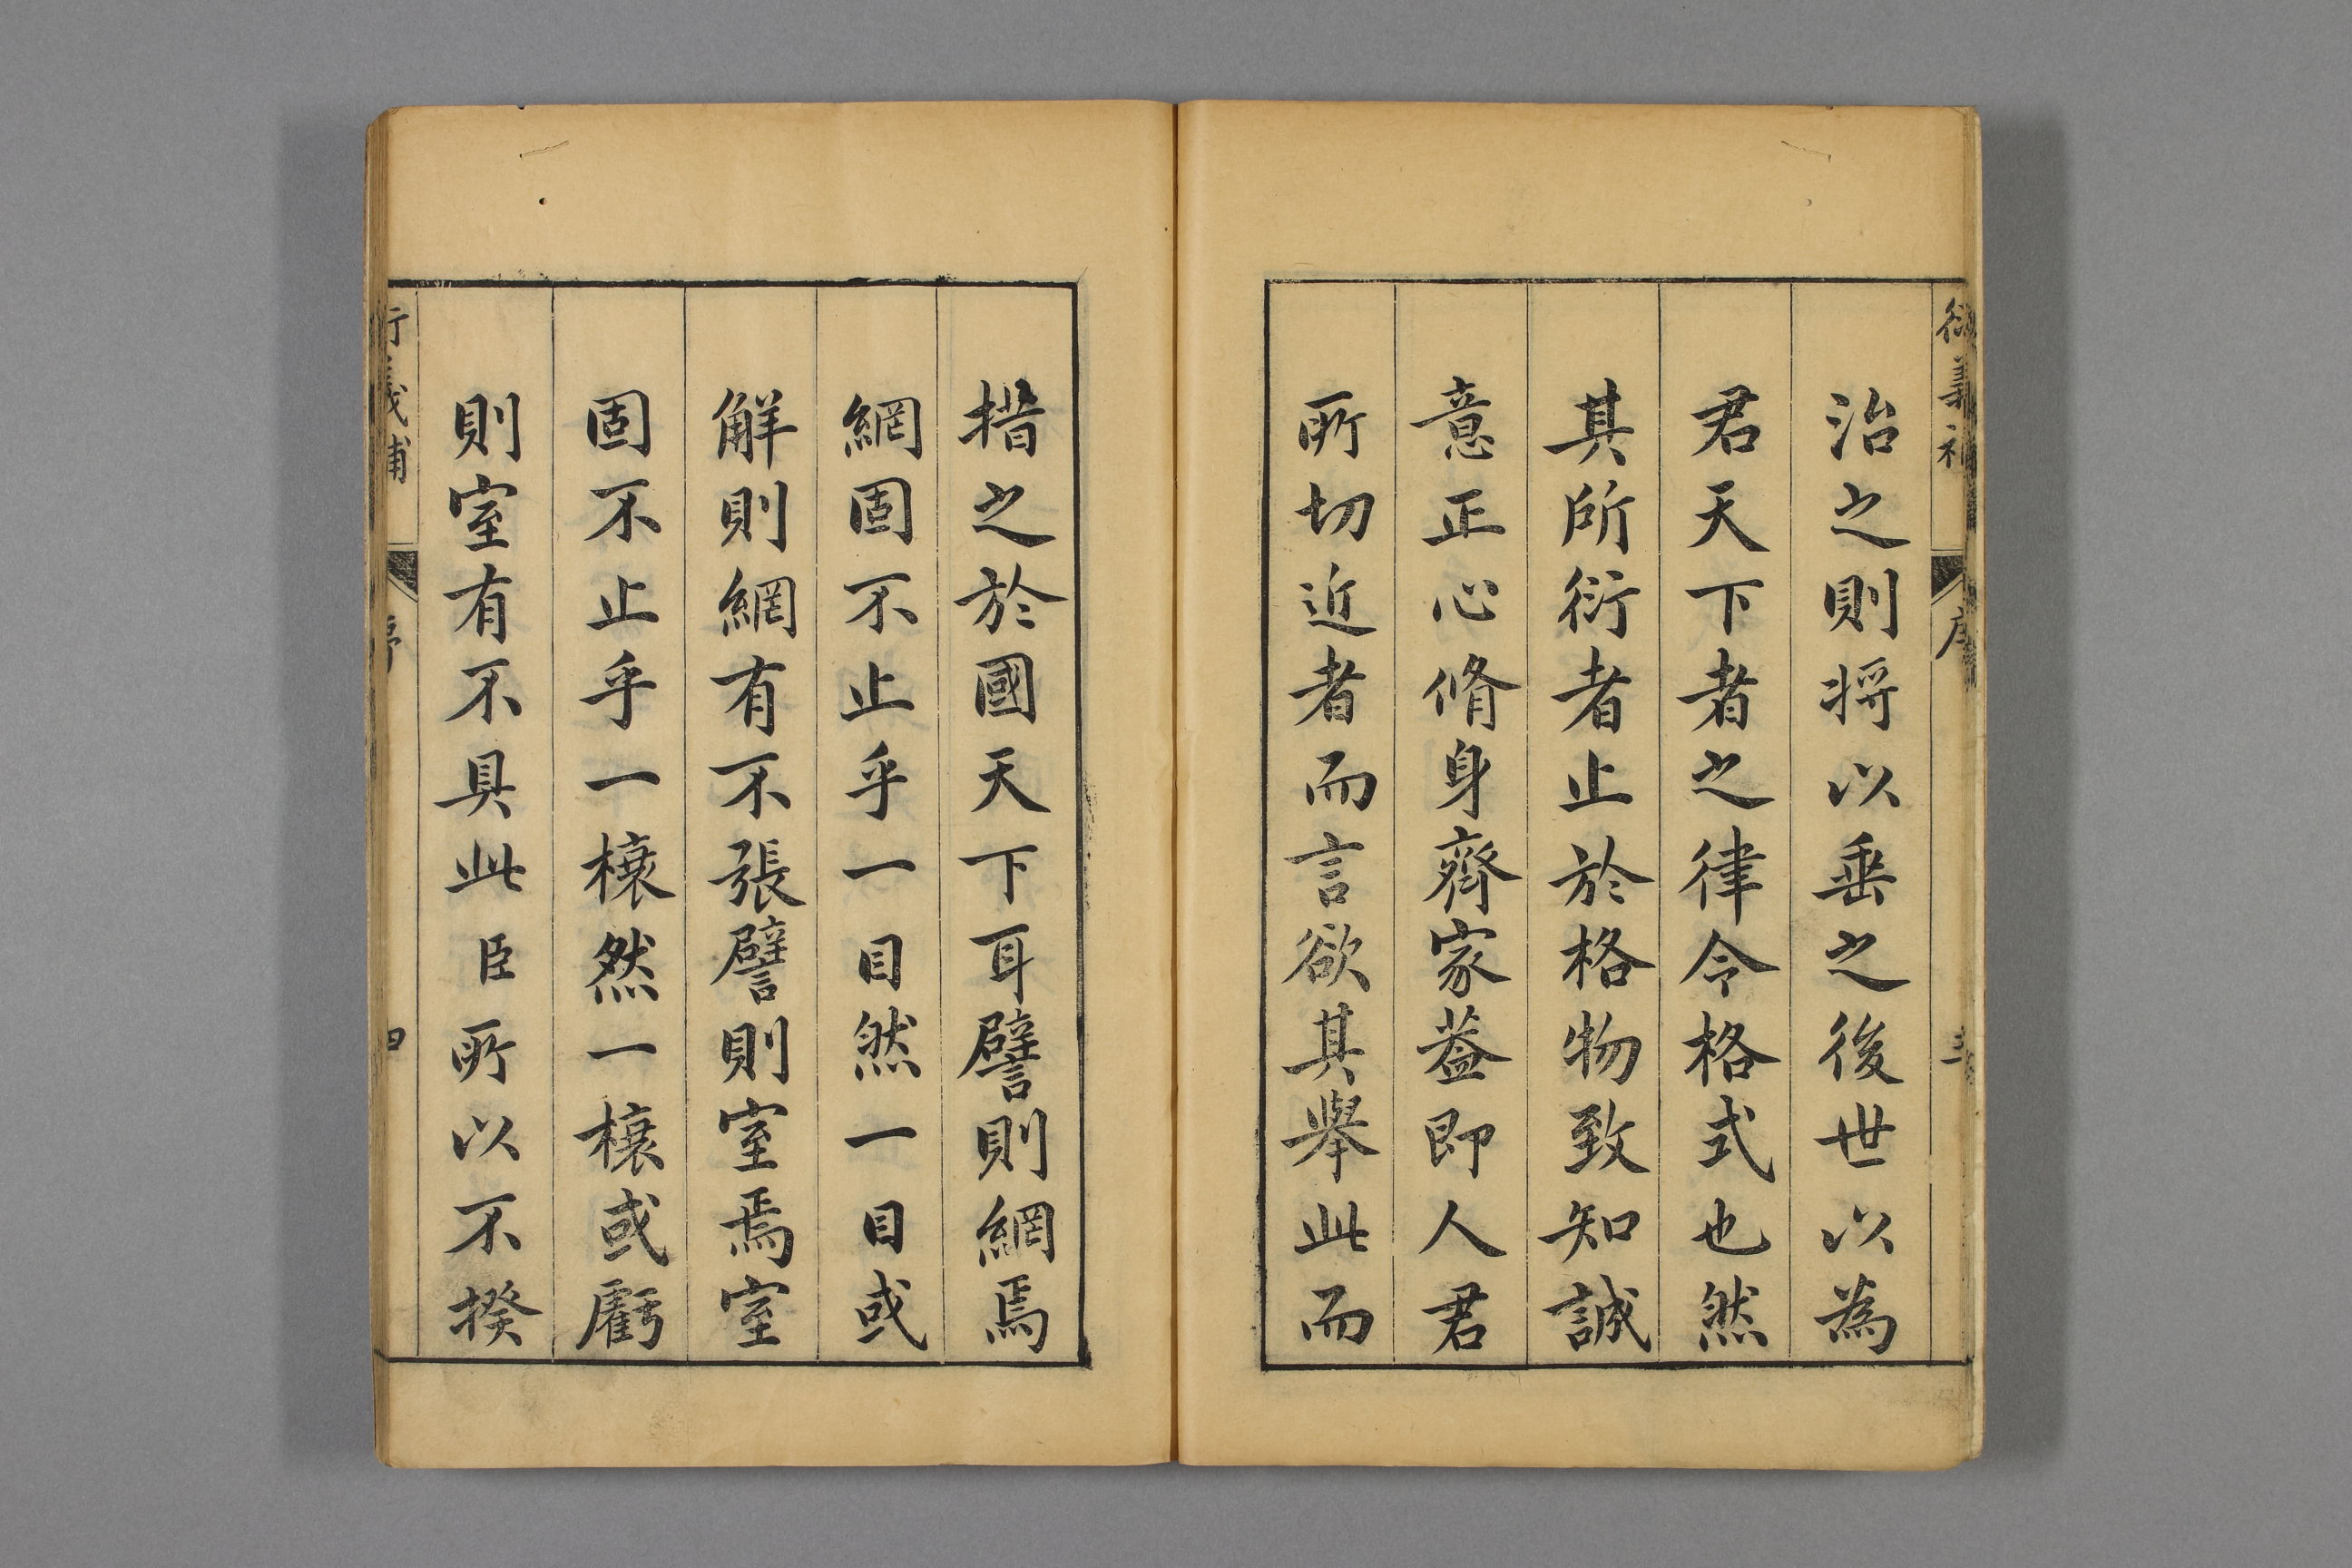 衍義補 序 三
治之則将以垂之後世以為
君天下者之律令格式也然
其所衍者止於格物致知誠
意正心脩身齊家葢即人君
所切近者而言欲其舉此而
措之於國天下耳譬則網焉
網固不止乎一目然一目或
觧則網有不張譬則室焉室
固不止乎一榱然一榱或虧
則室有不具此臣所以不揆
衍義補 序 四